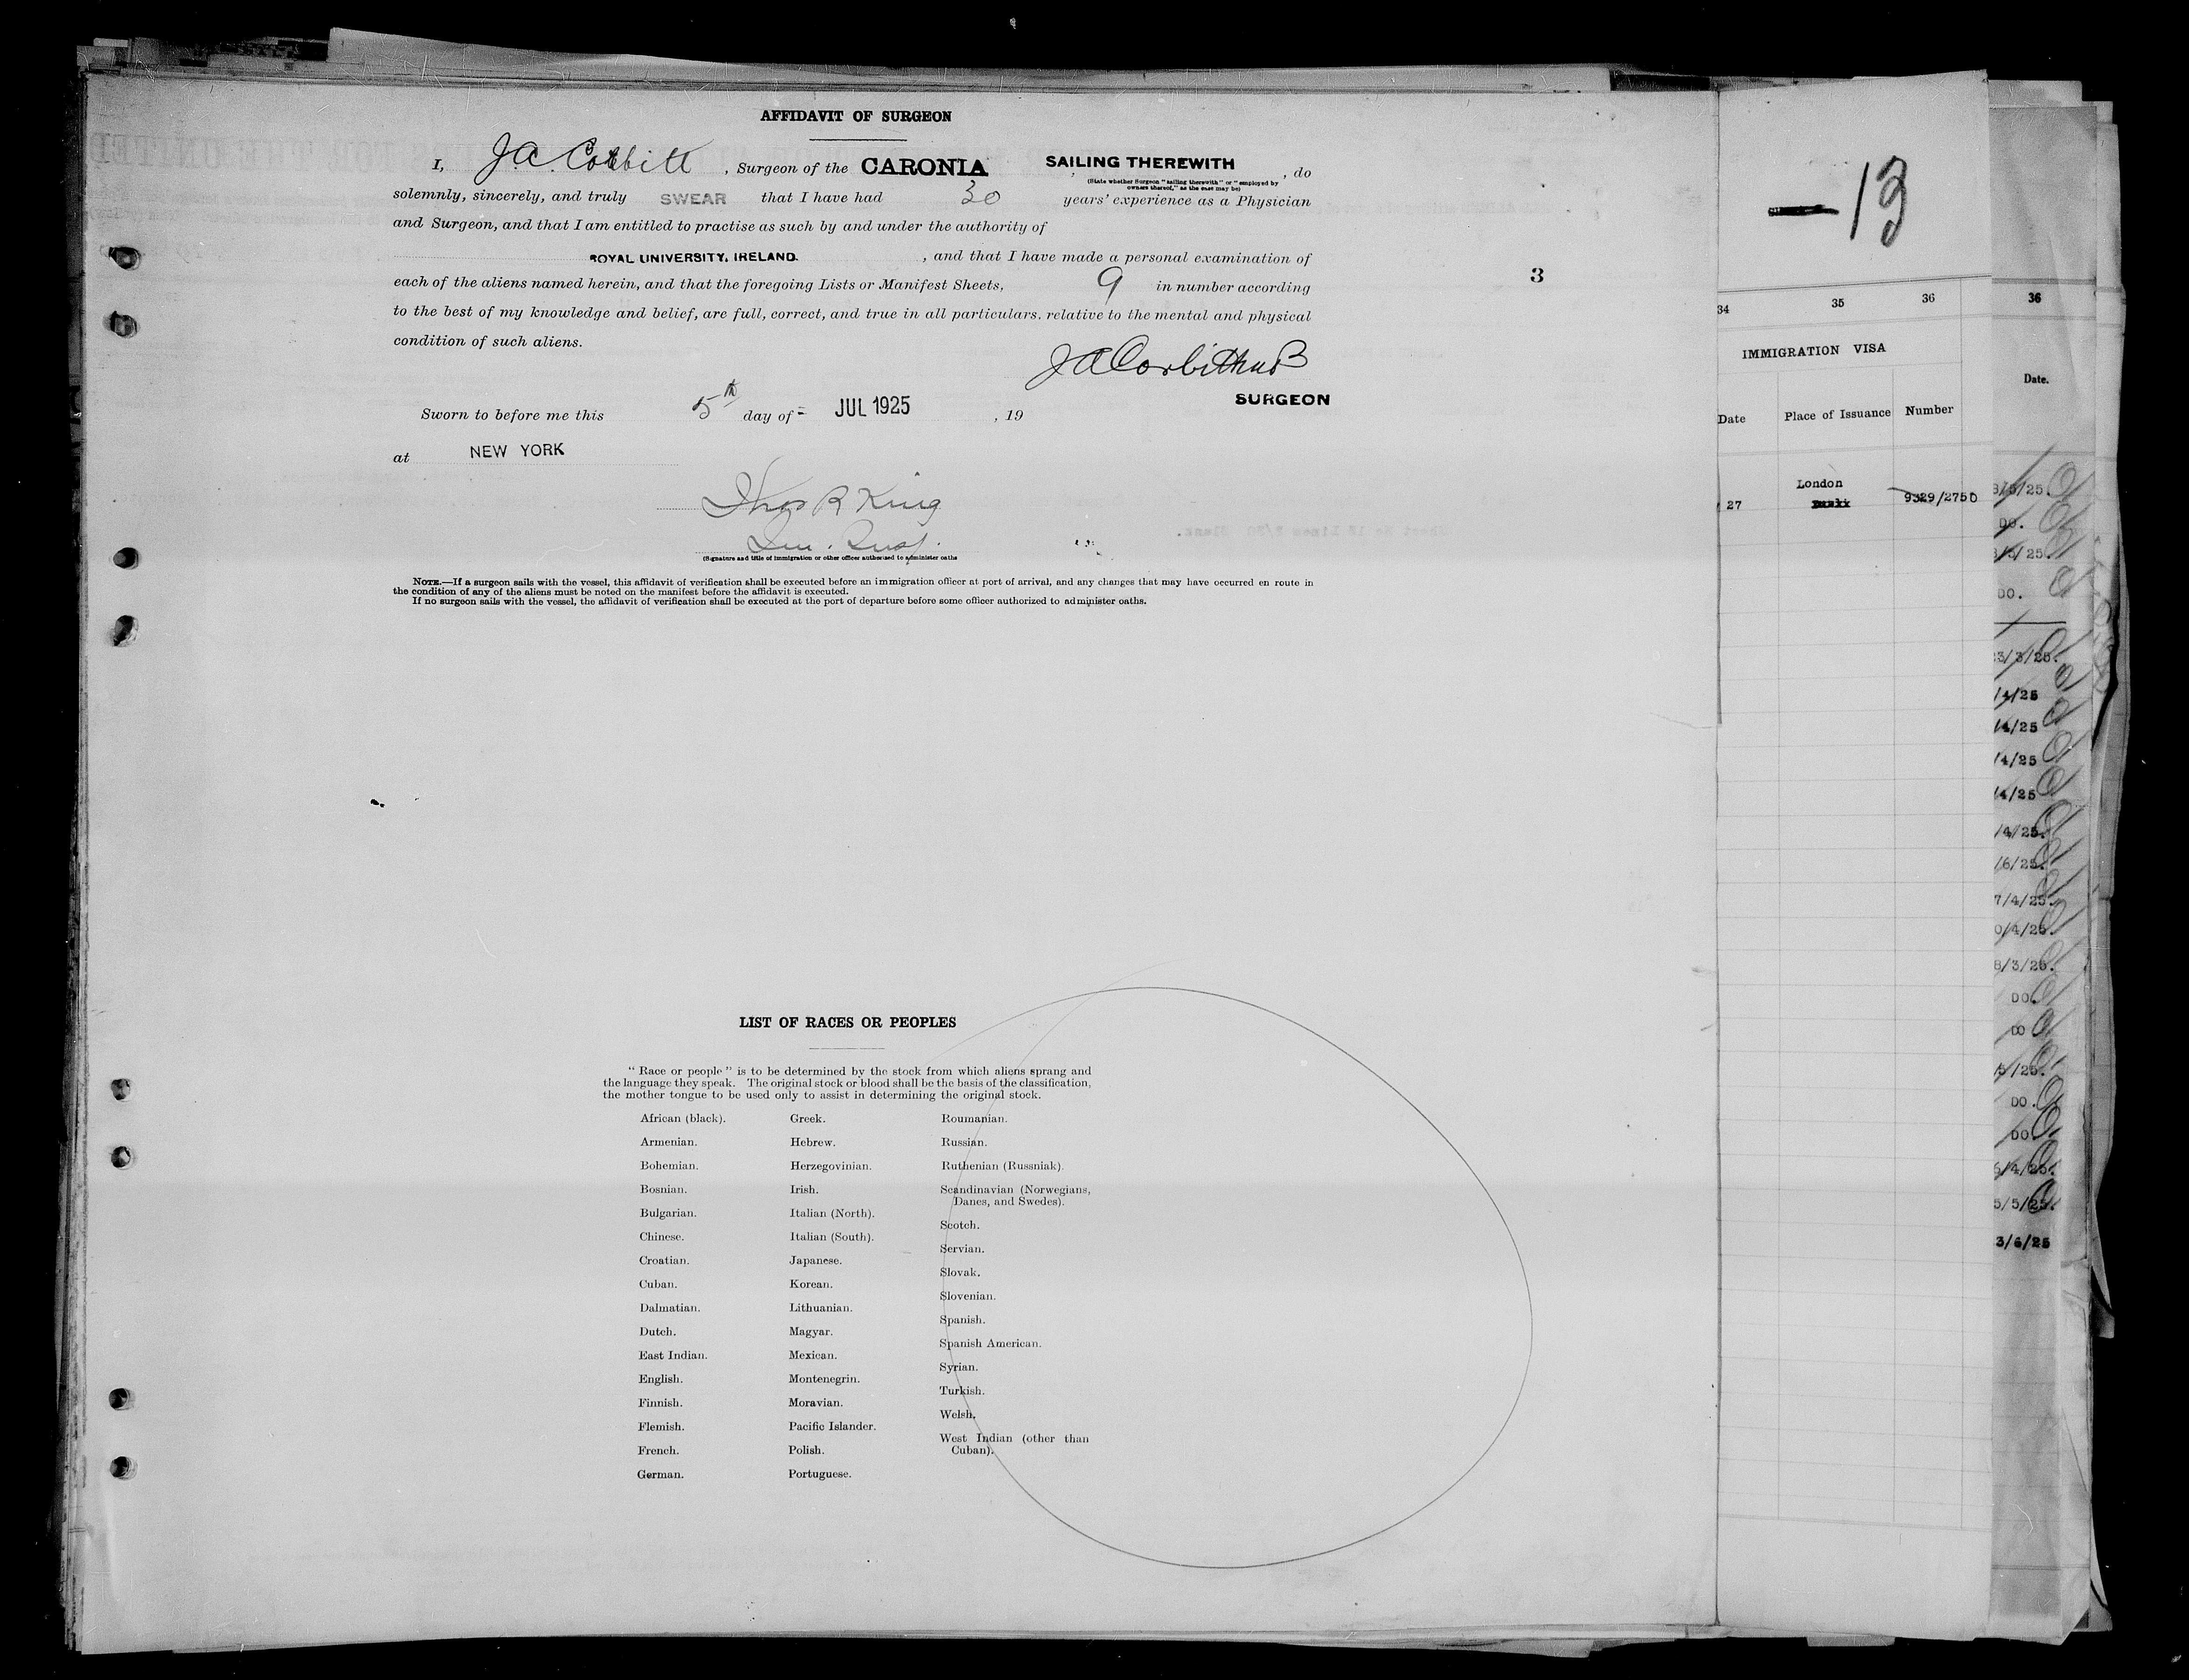 AFFIDAVIT OF SURGEON
I, J A Corbitt , Surgeon of the CARONIA SAILING THEREWITH , do
(State whether Surgeon "sailing therewith" or "employed by
owners thereof," as the case may be)
solemnly, sincerely, and truly SWEAR that I have had 30 years' experience as a Physician
and Surgeon, and that I am entitled to practise as such by and under the authority of
ROYAL UNIVERSITY, IRELAND. , and that I have made a personal examination of
each of the aliens named herein, and that the foregoing Lists or Manifest Sheets, 9 in number according
to the best of my knowledge and belief, are full, correct, and true in all particulars, relative to the mental and physical
condition of such aliens.
J A Corbitt MB
SURGEON
Sworn to before me this 5th day of JUL 1925 , 19
at NEW YORK
Thos R King
Im. Insp.
(Signature and title of immigration or other officer authorised to administer oaths
NOTE.—If a surgeon sails with the vessel, this affidavit of verification shall be executed before an immigration officer at port of arrival, and any changes that may have occurred en route in
the condition of any of the aliens must be noted on the manifest before the affidavit is executed.
If no surgeon sails with the vessel, the affidavit of verification shall be executed at the port of departure before some officer authorized to administer oaths.
3
LIST OF RACES OR PEOPLES
"Race or people" is to be determined by the stock from which aliens sprang and
the language they speak. The original stock or blood shall be the basis of the classification,
the mother tongue to be used only to assist in determining the original stock.
African (black).
Armenian.
Bohemian.
Bosnian.
Bulgarian.
Chinese.
Croatian.
Cuban.
Dalmatian.
Dutch.
East Indian.
English.
Finnish.
Flemish.
French.
German.
Greek.
Hebrew.
Herzegovinian.
Irish.
Italian (North).
Italian (South).
Japanese.
Korean.
Lithuanian.
Magyar.
Mexican.
Montenegrin.
Moravian.
Pacific Islander.
Polish.
Portuguese.
Roumanian.
Russian.
Ruthenian (Russniak).
Scandinavian (Norwegians,
Danes, and Swedes).
Scotch.
Servian.
Slovak.
Slovenian.
Spanish.
Spanish American.
Syrian.
Turkish.
Welsh.
West Indian (other than
Cuban).
—13
34 35 36
IMMIGRATION VISA
Date Place of Issuance Number
London
27 9329/2750
36
Date.
3/5/25.
DO.
3/5/25.
DO.
3/3/25.
/4/25
/4/25
/4/25
/4/25
/4/25.
/6/25.
7/4/25.
0/4/25.
8/3/25.
DO.
DO
5/25.
DO.
DO.
6/4/25.
5/5/25.
3/6/25